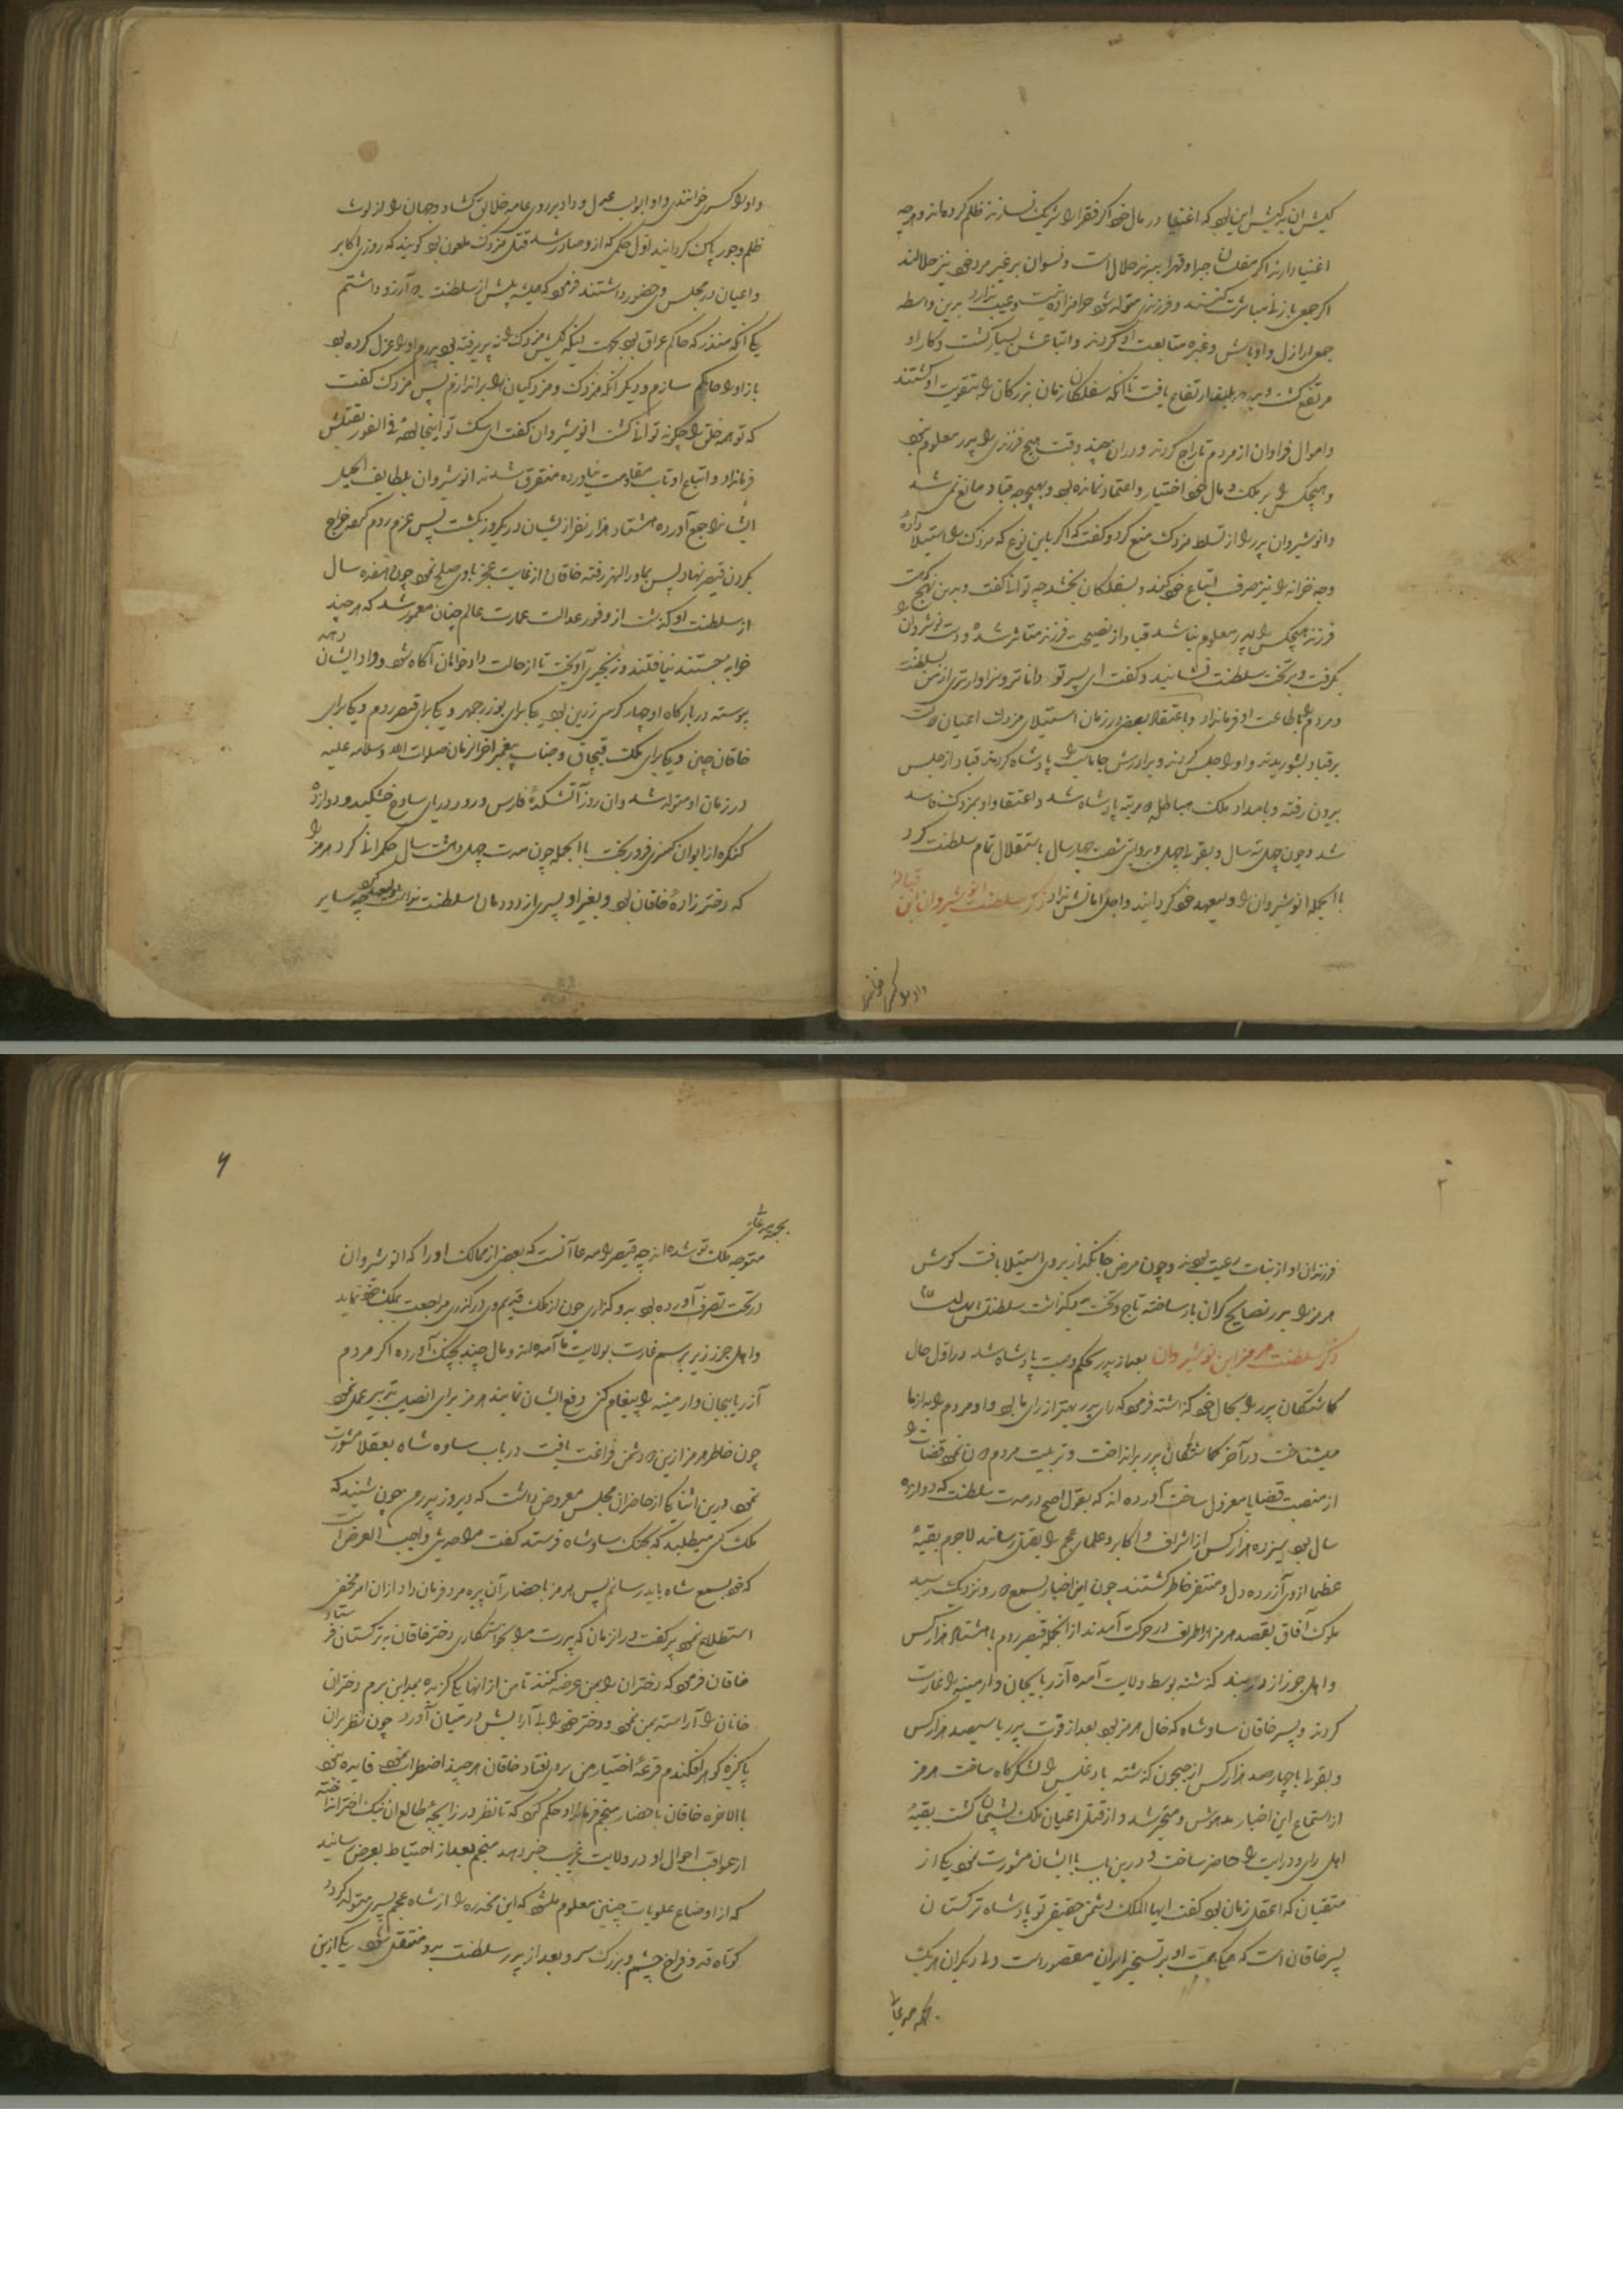 کیش آن بدکیش این بود که اغنیا در مال خود اگر فقرا را شریک نسازند ظلم کرده‌اند و هرچه
اغنیا دارند اگر مفلسان جبرا و قهرا ببرند حلال است و نسوان بر غیر مرد خود نیز حلالند
اگر جمعی با زنا مباشرت کنند و فرزندی متولد شود حرامزاده نیست و عیب ندارد بدین واسطه
جمعی اراذل و اوباش و غیره متابعت او کردند و اتباعش بسیار گشت و کار او
مرتفع گشت و ارتفاع یافت تا آنکه سفلگان زمان بزرگان را بتقویت او کشتند
و اموال فراوان از مردم تاراج کردند و در آن چند وقت هیچ فرزندی را پدر معلوم نبود
و هیچکس را بر ملک و مال خود اختیار و اعتماد نمانده بود و بهیچوجه قباد مانع نمی شد
و انوشیروان پدر را از تسلط مزدک منع کرد و گفت که اگر باین نوع که مزدک را استیلا داده
وجه خزانه را نیز صرف اتباع خود کند و بسفلگان بخشد چه توان گفت و بدین نهج که
فرزند هیچکس را پدر معلوم نباشد قباد از نصیحت فرزند متاثر شده و دست نوشیروان را
بگرفت و بر تخت سلطنت نشانید و گفت ای پسر تو داناتر و سزاوارتری از من بسلطنت
و مردم را باطاعت او فرمان داد و باعتقاد بعضی در زمان استیلای مزدک اعیان
بر قباد بشوریدند و او را حبس کردند و برادرش جاماسب را پادشاه کردند قباد از حبس
بیرون رفته و بامداد ملک هیاطله مرتبه پادشاه شد و اعتقاد او بمزدک فاسد
شد و چون چهل سه سال و بقولی چهل و بروایتی شصت چهار سال باستقلال تمام سلطنت کرد
باالجمله انوشیروان را ولیعهد خود گردانید و اجل امانش نداد ذکر سلطنت انوشیروان ابن قباد
واو را کسری خوانندی و او ابواب عدل و داد بر روی عامه خلایق گشاد و جهان را از لوث
ظلم و جور پاک گردانید اول حکمی که ازو صادر شد قتل مزدک ملعون بود گویند که روزی اکابر
و اعیان در مجلس وی حضور داشتند فرمود که همیشه پیش از سلطنت آرزو داشتم
یکی آنکه منذر که حاکم عراق بود بجهت اینکه کیش مزدک را نپذیرفته بود پدرم او را عزل کرده بود
باز او را حاکم سازم و دیگر آنکه مزدک و مزدکیان را براندازم پس مزدک گفت
که تو همه خلق را چگونه توانی کشت انوشیروان گفت ای سگ تو اینجا بوده فی الفور بقتلش
فرمان داد و اتباع او تاب مقاومت نیاورده متفرق شدند انوشیروان بلطایف الحیل
ایشانرا جمع آورده هشتاد هزار نفر از ایشان در یکروز بکشت پس عزم روم کرده خراج
بگردن قیصر نهاد پس بماورالنهر رفته خاقان از غایت عجز با وی صلح نمود چون هفده سال
از سلطنت او گذشت از وفور عدالت عمارت عالم چنان معمور شد که هر چند
خرابه جستند نیافتند و زنجیری آویخت تا از حالت دادخواهان آگاه شود و داد ایشان دهد
پیوسته در بارگاه او چهار کرسی زرین بود یکی برای بوذرجمهر و یکی برای قیصر روم و یکی برای
خاقان چین و یکی برای ملک قبچاق و جناب پیغمبر آخرالزمان صلوات الله و سلامه علیه
در زمان او متولد شد و آن روز آتشکده فارس و رود دریای ساوه خشکید و دوازده
کنگره از ایوان کسری فرو ریخت باالجمله چون مدت چهل و هشت سال حکمرانی کرد هرمز را
که دختر زاده خاقان بود و بغیر او پسری از دودمان سلطنت نداشت ولیعهد کرد چه سایر
فرزندان او از بنات رعیت بودند و چون مرض جانگداز بر وی استیلا یافت گوش
هرمز را بدرر نصایح گران بار ساخته تاج و تخت بوی گذاشت
ذکر سلطنت هرمز ابن نوشیروان بعد از پدر بحکم وصیت پادشاه شد در اول حال
گماشتگان پدر را بحال خود گذاشته فرمود که رای پدر بهتر از رای ما بود و او مردم را به از ما
میشناخت در آخر گماشتگان پدر برانداخت و تربیت مردم نمود قضات را
از منصب قضا یا معزول ساخت آورده‌اند که بقول اصح در مدت سلطنت که دوازده
سال بود سیزده هزار کس از اشراف و اکابر و علمای عجم را بقتل رسانید لاجرم بقیه
عظما از وی آزرده دل و متنفر خاطر گشتند چون این اخبار بسمع دور و نزدیک رسید
ملوک آفاق بقصد هرمز از اطراف در حرکت آمدند از انجمله قیصر روم با هشتاد هزار کس
و اهل خزر از دربند گذشته بوسط ولایت آمده آذربایجان و ارمینیه را غارت
کردند و پسر خاقان ساوشاه که خال هرمز بود بعد از فوت پدر با سیصد هزار کس
و بقولی با چهارصد هزار کس از جیحون گذشته بادغیس را لشکرگاه ساخت هرمز
از استماع این اخبار مدهوش و متحیر شد و از قتل اعیان ملک پشیمان گشت بقیه
اهل رای و درایت را حاضر ساخت و درین باب باایشان مشورت نمود یکی از
متقیان که اعقل زمان بود گفت ایها الملک دشمن حقیقی تو پادشاه ترکستان
پسر خاقان است که همگی همت او بر تسخیر ایران مقصور است ولی دیگران هر یک
بجهت مدعائی
متوجه ملک تو شده‌اند چه قیصر را مدعا آنست که بعضی از ممالک او را که انوشیروان
در تحت تصرف آورده بود بدو گذاری چون از ملک قدیم وی درگذری مراجعت بملک خود نماید
و اهل خزر نیز برسم غارت بولایت ما آمده‌اند و مال چند بچنگ آورده اگر مردم
آذربایجان و ارمینیه را پیغام کنی دفع ایشان نمایند هرمز برای انصیب تدبیر عمل نمود
چون خاطر هرمز ازین دشمن فراغت یافت در باب ساوه شاه بعقلا مشورت
نمود درین اثنا یکی از حاضران مجلس معروض داشت که دیروز پدر من چون شنید که
ملک کسی میطلبد که بجنگ ساوشاه فرستد گفت مرا حدیثی واجب العرض است
که خود بسمع شاه باید رسانم پس هرمز باحضار آن پیره مرد فرمان داد از آن امر مخفی
استطلاع نمود پیر گفت در آن زمان که پدرت مرا بخواستگاری دختر خاقان به ترکستان فرستاد
خاقان فرمود که دختران را بمن عرضه کنند تا من از آنها یکی گزیده بمداین برم دختران
خاقان را آراسته بمن نمود و دختر خود را بی آرایش در میان آورد چون نظر بران
پاکیزه گوهر افکندم قرعه اختیار من بروی افتاد خاقان هر چند اضطراب نمود فایده نبود
باالاخره خاقان باحضار منجم فرمان داد و حکم کرد که تا نظر در زایچه طالع آن نیک اختر انداخته
از عواقب احوال او در ولایت غربت خبر دهد منجم بعد از احتیاط بعرض رسانید
که از اوضاع علویات چنین معلوم میشود که این مخدره را از شاه عجم پسری متولد گردد
کوتاه قد و فراخ چشم و بزرگ سر و بعد از پدر سلطنت بدو منتقل شود یکی ازین